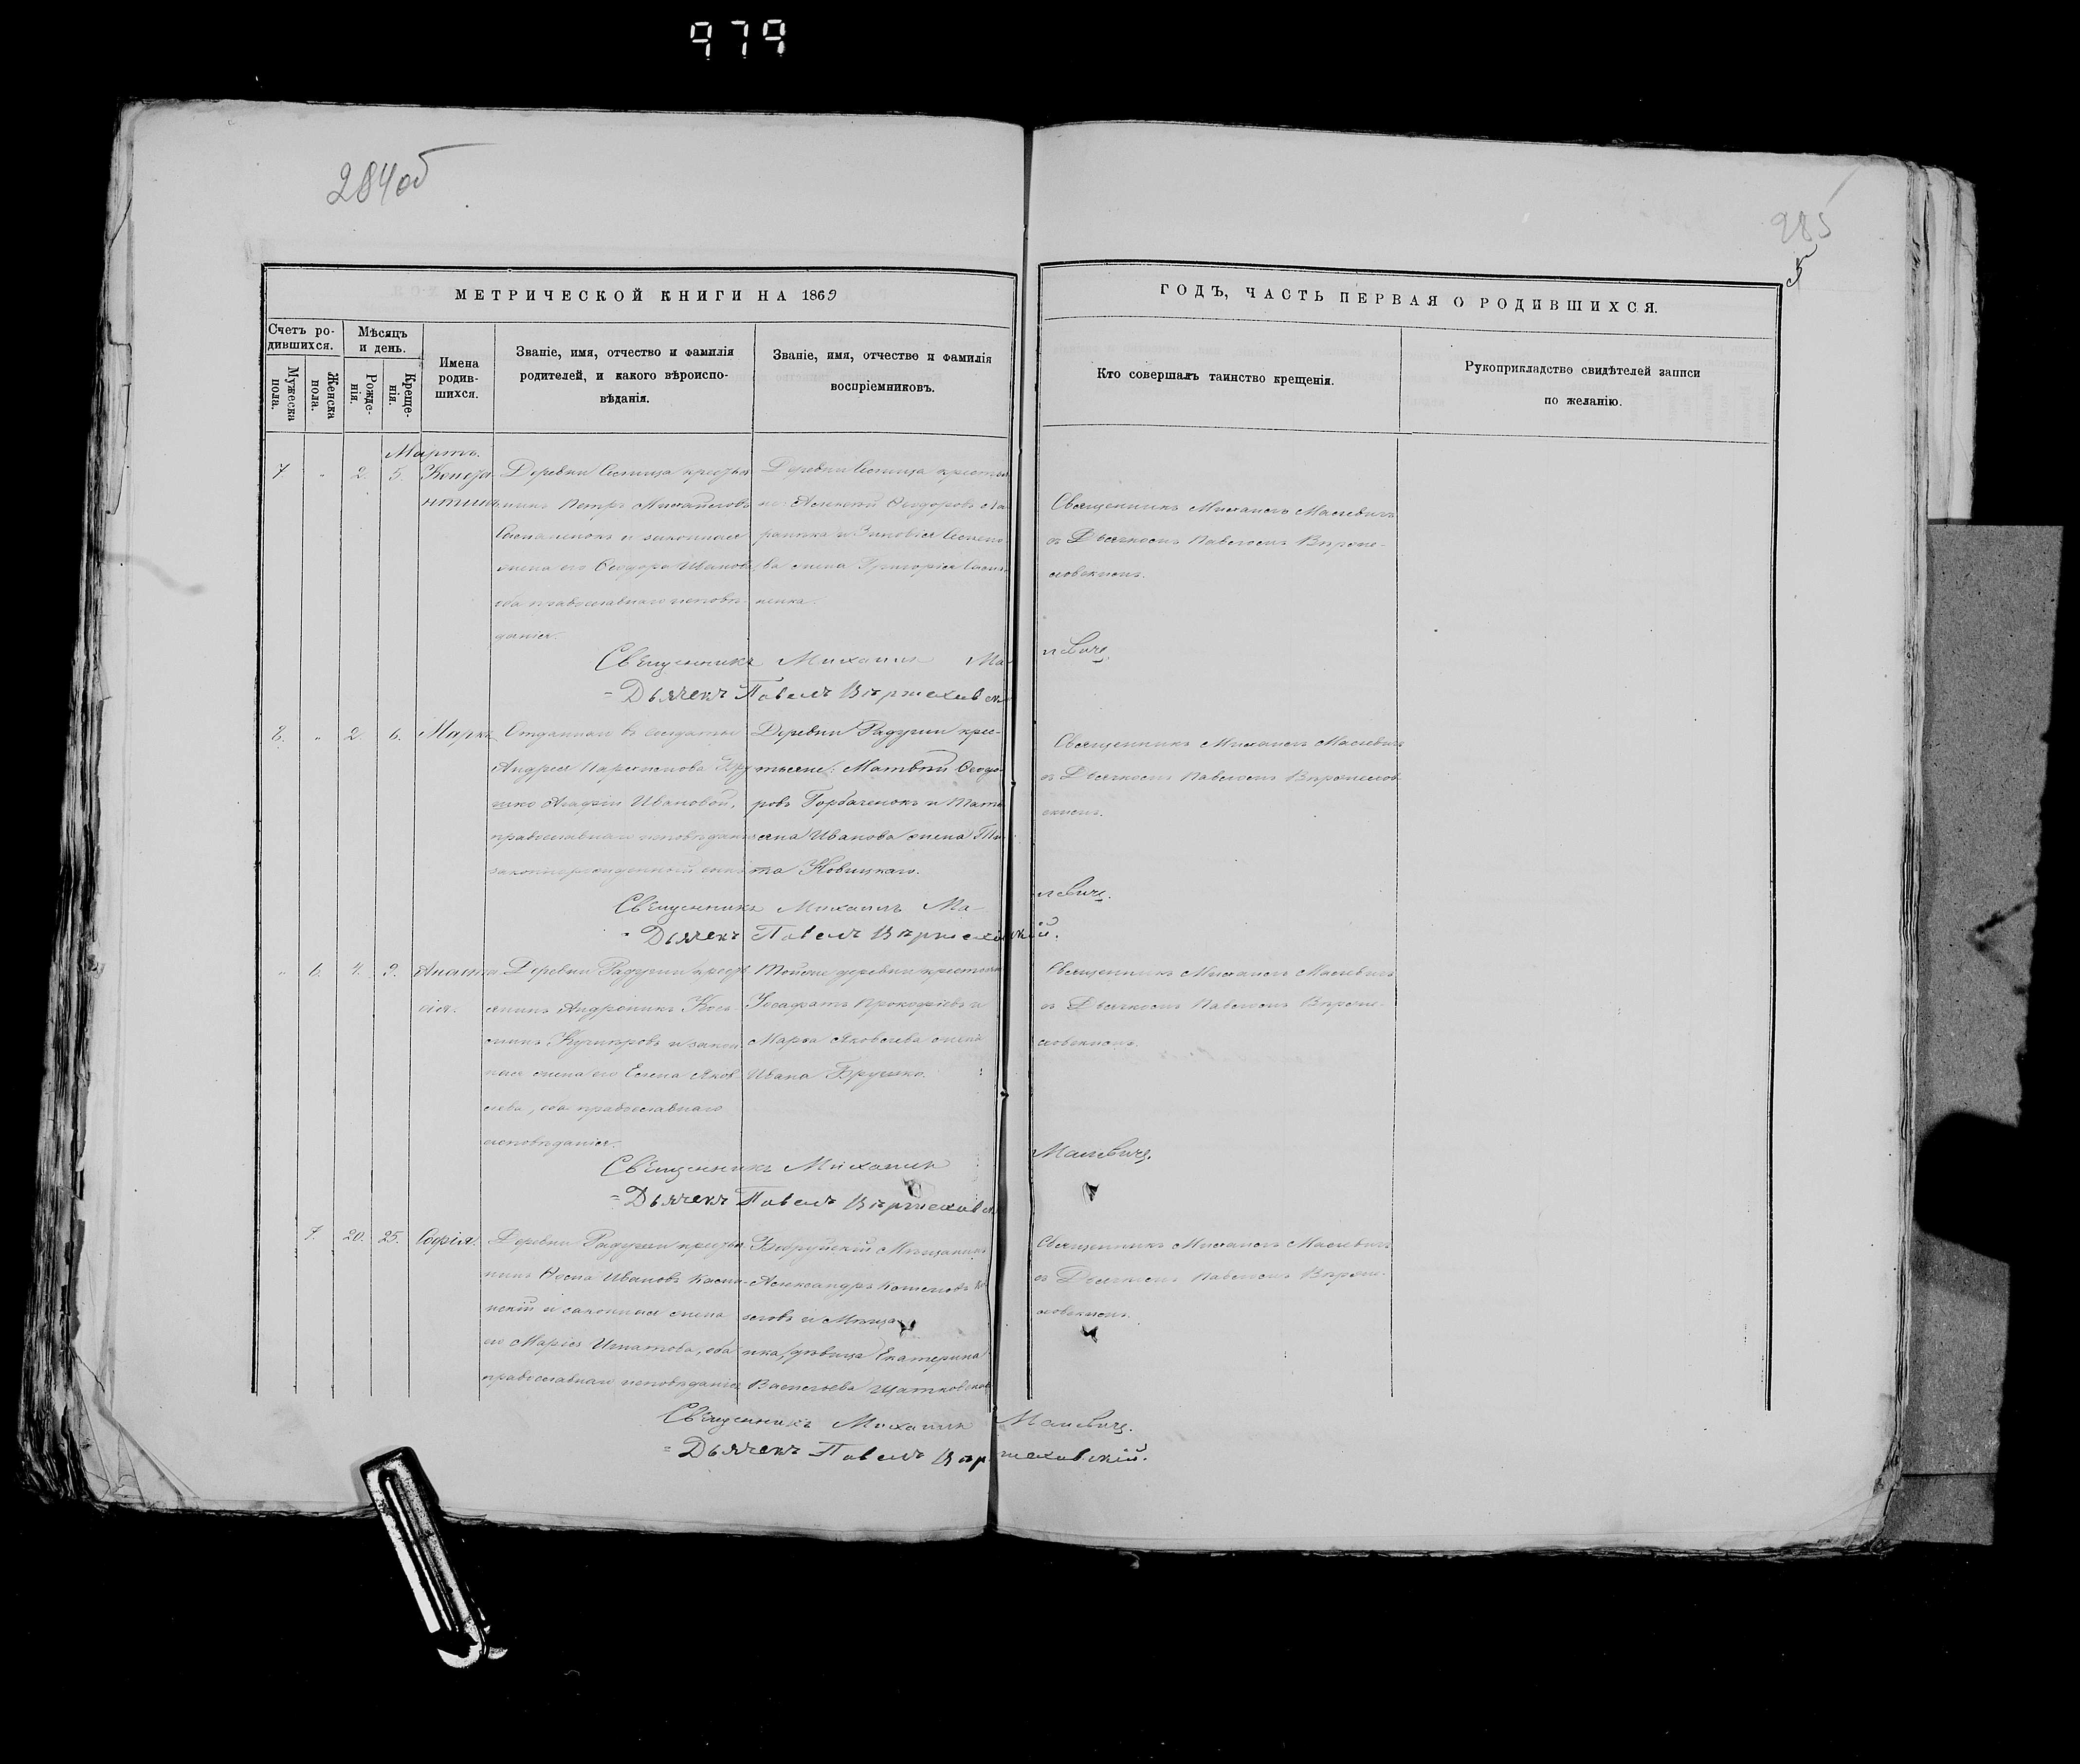 979
284об
285
5
МЕТРИЧЕСКОЙ КНИГИ НА 1869
ГОДЪ, ЧАСТЬ ПЕРВАЯ О РОДИВШИХСЯ.
Счетъ ро-
дившихся.
Мужеска
пола.
Женска
пола.
Мѣсяцъ
и день.
Рожде-
нія.
Креще-
нія.
Имена
родив-
шихся.
Званіе, имя, отчество и фамилія
родителей, и какого вѣроиспо-
вѣданія.
Званіе, имя, отчество и фамилія
воспріемниковъ.
Кто совершалъ таинство крещенія.
Рукоприкладство свидѣтелей записи
по желанію.
Мартъ.
7. " 2. 5. Конста
нтинъ
Деревни крестья
нинъ Петръ Михайловъ
и законная
жена его Ѳеодора Иванова
оба православнаго исповѣ-
данія.
Деревни крестья
Алексѣй Ѳеодоровъ
и Зиновія
ва жена Григорія
Священникъ Михаилъ Малевичъ
съ Дьячкомъ Павломъ Вѣрже-
ховскимъ.
Священникъ Михаилъ Ма
левичъ
Дьячекъ Павелъ Вѣржеховск
8. " 2. 6. Маркъ
Отданнаго въ солдаты
Андрея
Агафіи Ивановой,
православнаго исповѣданія
законнорожденный сынъ
Деревни Радуши крес-
тьяне: Матвѣй Ѳеодо-
ровъ Горбаченокъ и Тать
яна Иванова жена Ти
та Новицкаго.
Священникъ Михаилъ Малевичъ
съ Дьячкомъ Павломъ Вѣржехов-
скимъ.
Священникъ Михаилъ Ма-
левичъ.
Дьячекъ Павелъ Вѣржеховскій.
" 6. 4. 9. Анаста
сія.
Деревни Радуши крест
янинъ Андроникъ Кось
минъ и закон
ная жена его Елена Яков
лева, оба православнаго
исповѣданія.
Тойже деревни крестьяне
Іосафатъ Прокофіевъ и
Марѳа Яковлева жена
Ивана
Священникъ Михаилъ Малевичъ
съ Дьячкомъ Павломъ Вѣрже-
ховскимъ.
Священникъ Михаилъ
Малевичъ.
Дьячекъ Павелъ Вѣржеховск
7. 20. 25. Софія.
Деревни Радуши крестья
нинъ Ѳома Ивановъ
и законная жена
его Марія Игнатова, оба
православнаго исповѣданія
Бобруйскій Мѣщанинъ
Александръ
и Мѣща
нка, дѣвица Екатерина
Васильева
Священникъ Михаилъ Малевичъ
съ Дьячкомъ Павломъ Вѣрже-
ховскимъ.
Священникъ Михаилъ Малевичъ.
Дьячекъ Павелъ Вѣржеховскій.